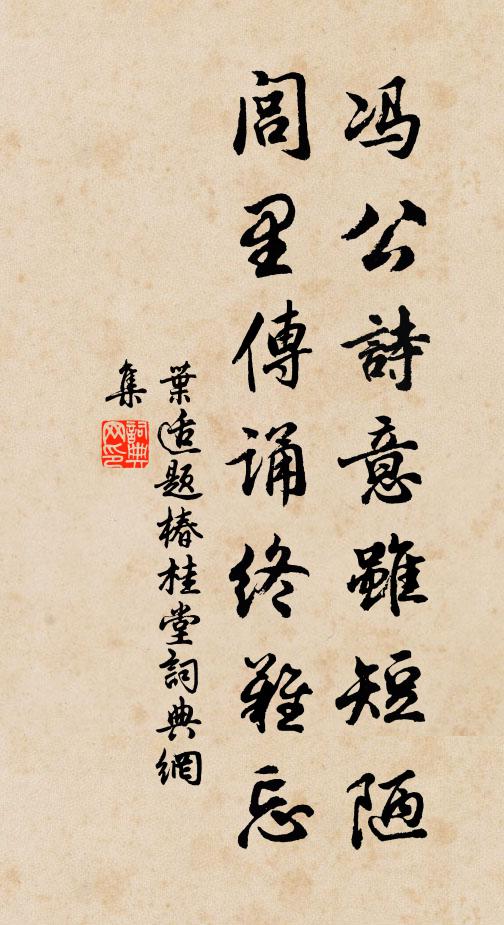 冯公詩意雖短陋
閭里傳诵终難忘
葉适题椿桂堂詞典網
集
詞典网印